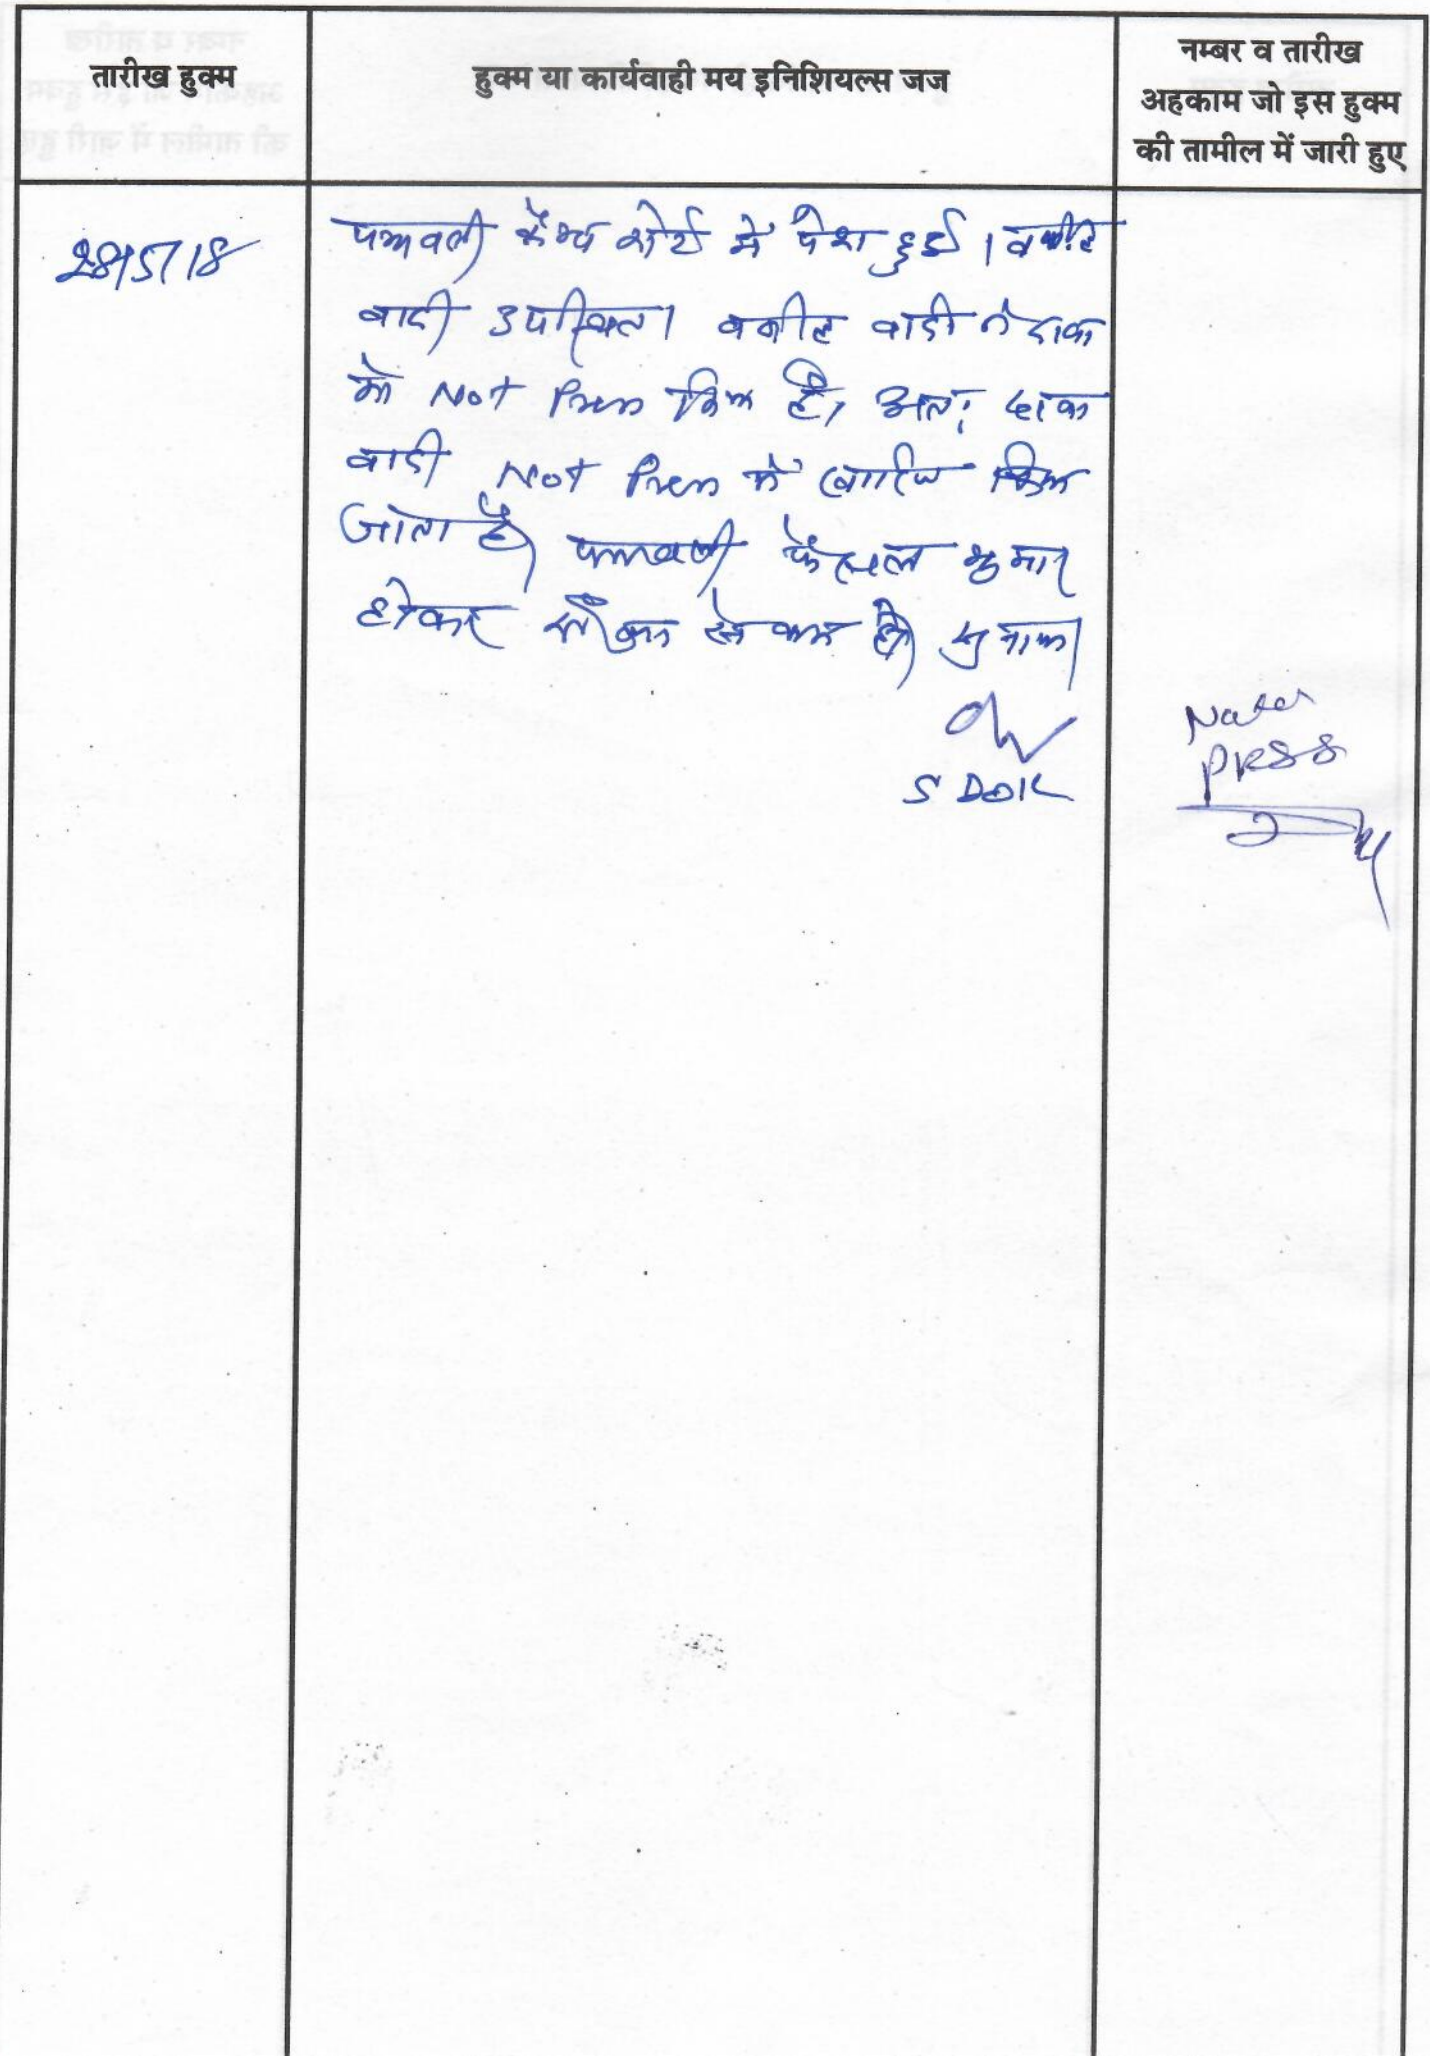 तारीख हुक्म
हुक्म या कार्यवाही मय इनिशियल्स जज
नम्बर व तारीख
अहकाम जो इस हुक्म
की तामील में जारी हुए
28/5/18
पत्रावली कैम्प कोर्ट में पेश हुई । वकील
वादी उपस्थित । वकील वादी ने दावा
को Not Press किया है, अतः दावा
वादी Not Press में खारिज किया
जाता है, पत्रावली फैसल शुमार
होकर
SDOK
Not
press